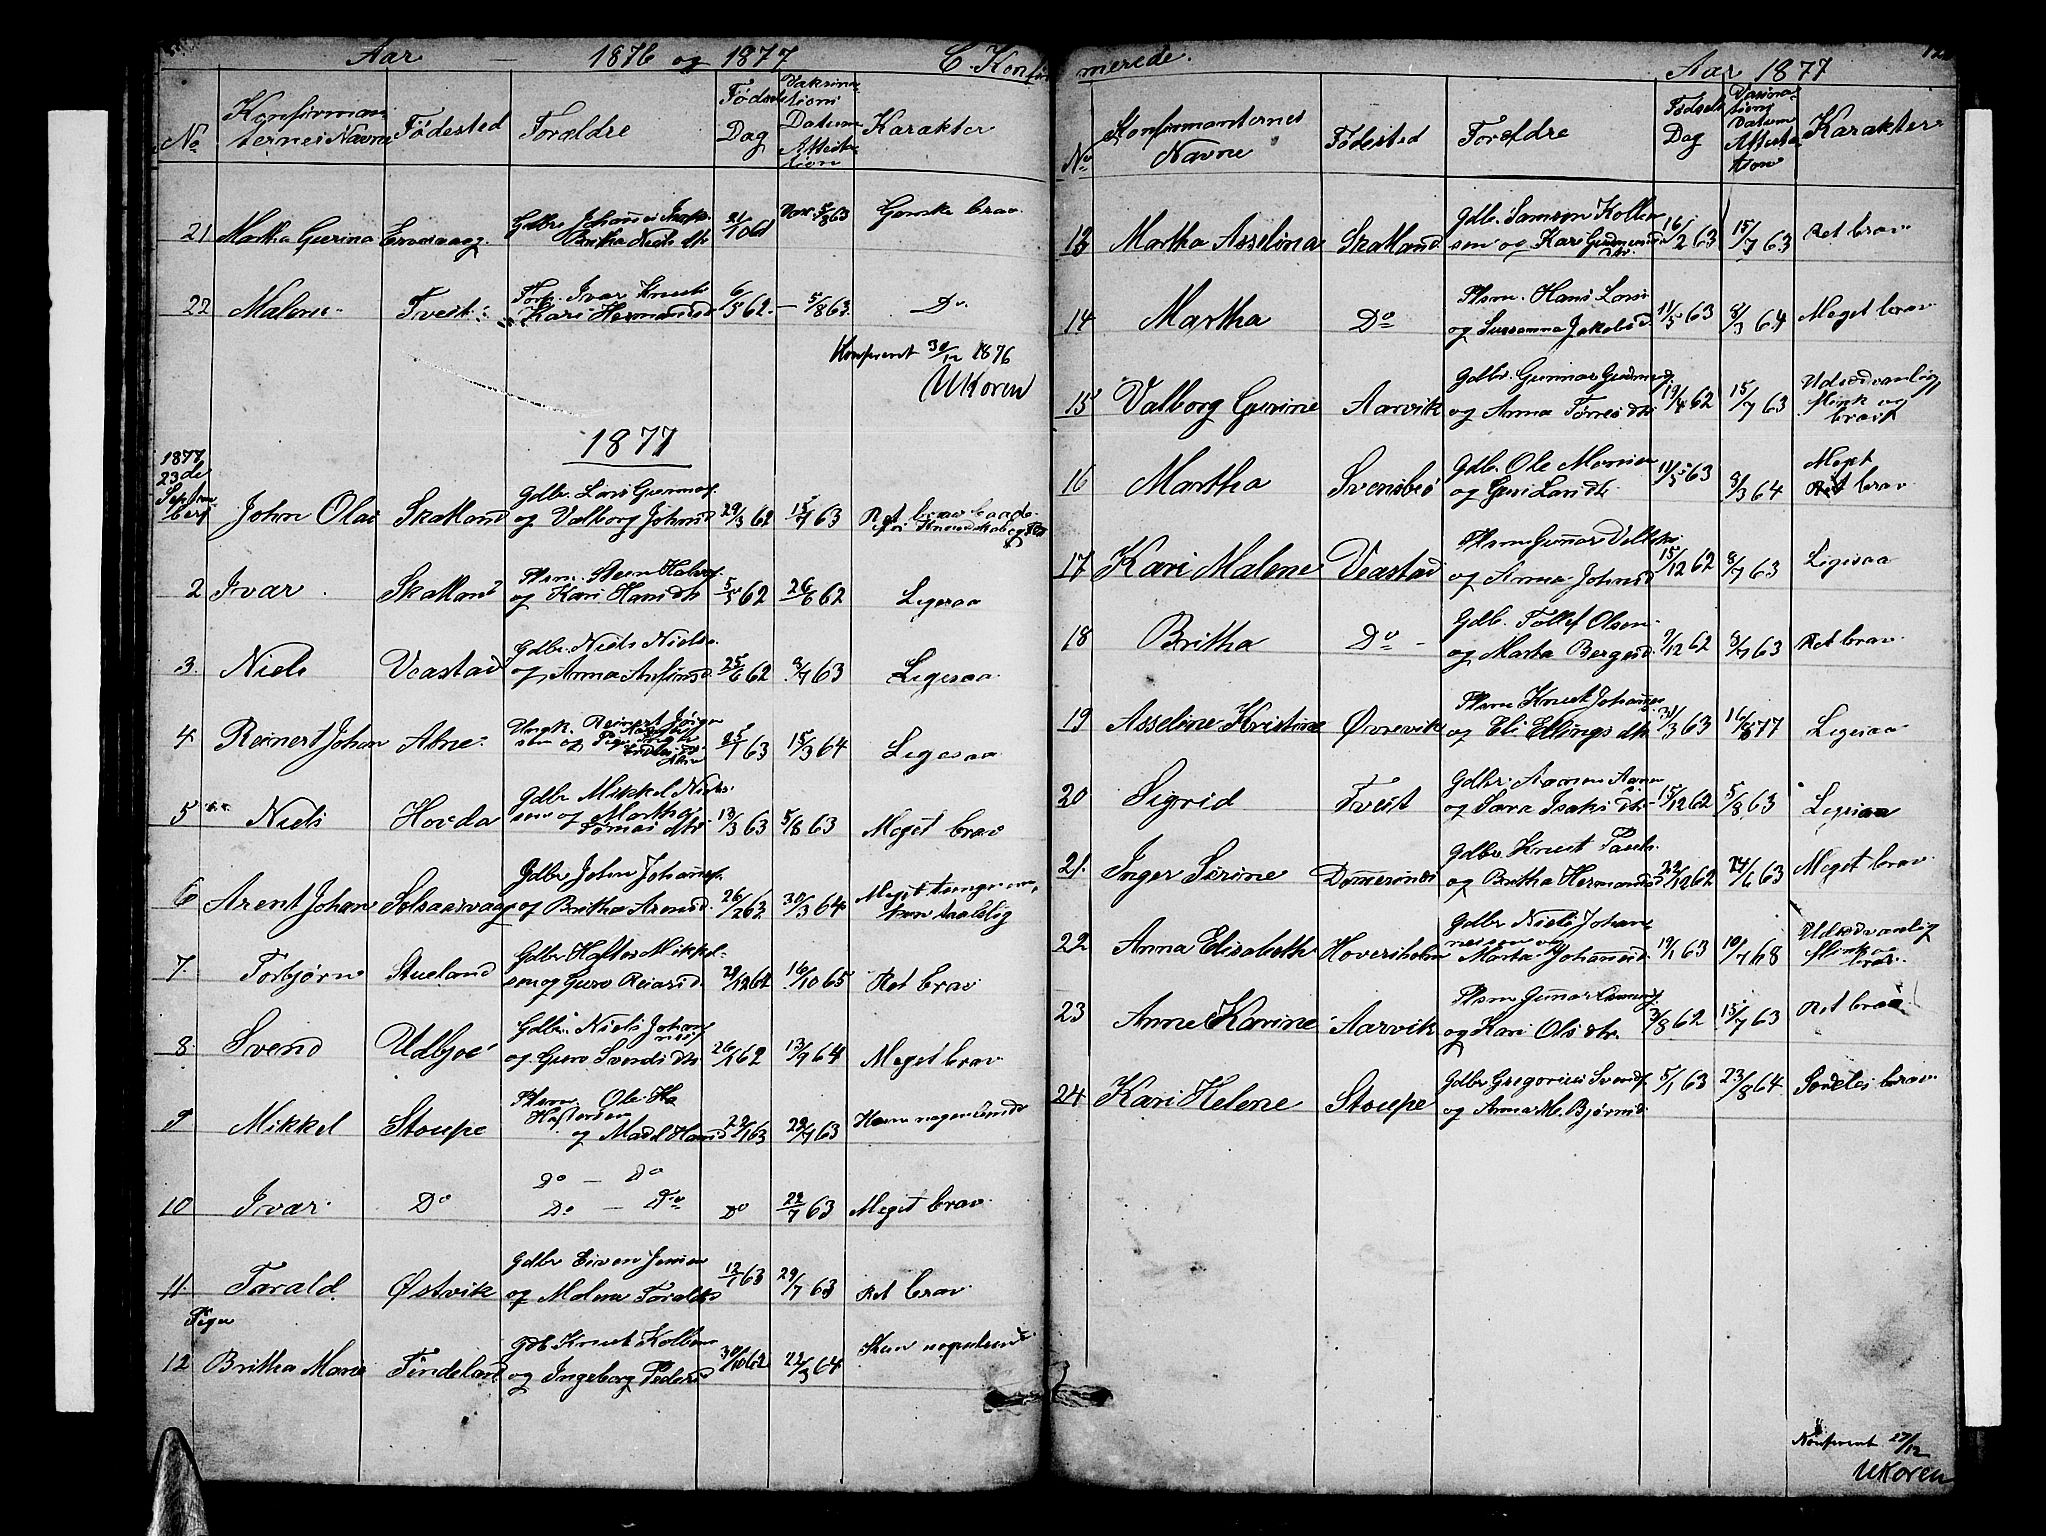 Aar — 1876 og 1877 C. Konfir
No
Konfirman-
ternes Navne
Fødested
Foraldre
Fødsels
Dag
Vaksina-
tions
Datum
Attesta-
tion
Karakter
21 Martha Gurina
Gdbr Johannes
Britha Niels dtr
Vac 5/8 63
Ganske brav
22 Malene
Tveit
Ivar Knuts
Kari Hermansd
6/5 62 — 5/8 63
Do
Konfirent 30/12 1876
UKoren
1877
1877
23de
Septem
berg
John Olai
Skatland
Gdbr. Lars Gunnars.
og Valborg Johnsd
29/3 62
15/7 63
Ret brav
2 Ivar
Skatland
Plsm. Steen Halvors.
og Kari Hans dtr
5/5 62
26/6 62
Ligesaa
3. Niels
Veastad
Gdbr. Niels Niels.
og Anna
25/6 62
8/7 63
Ligesaa
4. Reinert Johan
Atne
Ungk. Reinert Jørgen
sen og Pige
25/1 63
15/3 64
Ligesaa
5 Niels
Hovda
Gdbr Mikkel Niels
sen og Martha
Tomas dtr
13/3 63
5/8 63
Meget brav
6 Arent Johan
Solsaarvaag
Gdbr John Johanns.
og Britha Arensd.
26/2 63
30/3 64
Meget
7. Torbjørn
Stueland
Gdbr Haftor Mikkel-
sen og Guro Reiarsd
29/12 62
16/10 65
Ret brav
8. Svend
Udbjoe
Gdbr. Niels Johan
nes
og Guro Svends dtr
26/1 62
13/7 64
Meget brav
9 Mikkel
Stoupe
Plsm. Ole Ha
Haftorsen
og Madl Hansd
29/1 63
29/7 63
10 Ivar
Do
Do — Do
Do — Do
Do
22/7 63
Meget brav
11. Torald
Østvik
Gdbr Eiven Jensen
og Malene Toralds
12/1 63
29/7 63
Ret brav
Piger
12 Britha Marie
Tindeland
Gdb. Knut Kolben
og Ingeborg Peders
30/10 62
22/3 64
merede.
Aar 1877
No
Konfirmanternes
Navne
Fødested
Foraldre
Fødsels
Dag
Vaxina-
tions
Datum
Attesta
tion
Karakter
13 Martha Asselina
Skatland
Gdb. Samson Kolben
sen og Kari Gudmunds
dtr.
16/2 63
15/7 63
Ret brav
14 Martha
Do
Plsm. Hans Lars
og Sussanna Jakobs d.
11/5 63
8/3 64
Meget brav
15 Valborg Gurine
Aarvik
Gdbr. Gunnar Gudmund
og Anna Torres dtr
19/4 62
15/7 63
Udsædvanlig
flink og
brav
16 Martha
Svensbø
Gdb. Ole Monsen
og Guri Lars dtr
11/5 63
8/3 64
Meget
brav
17 Kari Malene
Veastad
Plsm Gunnar
og Anna Johnsd
15/12 62
8/7 63
Ligesaa
18 Britha
Do
Gdb. Tollef Olsen
og Marta Bergesd.
9/12 62
8/7 63
Ret brav
19 Asseline Kristine
Øvrevik
Plsm Knut Johannes
og Eli Ellings dtr
31/3 63
16/6 77
Ligesaa
20 Sigrid
Tveit
Gdbr. Aamun Aamun
og Sara Isaks dtr
15/12 62
5/8 63
Ligesaa
21. Inger Serine
Gdbr Knut Pauls.
og Britha Hermansd
22/12 62
24/6 63
Meget brav
22 Anna Elisabeth
Hoversholm
Gdbr Niels Johan
nesen og
Marta Johannsd.
19/1 63
10/7 68
Udsædvanlig
flink og
brav
23 Anne Karine
Aarvik
Plsm Gunnar
og Kari Ols dtr.
3/8 62
15/7 63
Ret brav
24 Kari Helene
Stoupe
Gdbr Gregorius Svends.
og Anna M. Bjørnsd.
5/1 63
23/8 64
Særdeles brav
Konfirent 27/12
UKoren